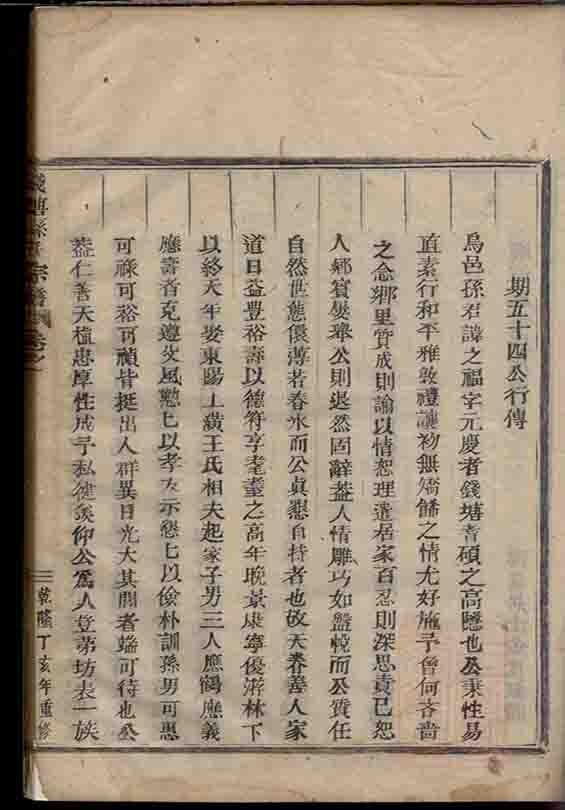 期五十四公行傳
烏邑孫君諱之福字元慶者錢塘耆碩之高隱也公秉性易
直素行和平雅敦禮讓初無矯餙之情尤好施予曾何吝嗇
之念鄉里質成則諭以情恕理遣居家百忍則深思責已恕
人鄉賓爕舉公則退然固辭葢人情雕巧如盤悅而公質任
自然世態儇薄若春氷而公真慤自持者也故天眷善人家
道日益豐裕壽以德符亨耄耋之高年晚景康寧優游林下
以終天年娶東陽上璜王氏相夫起家子男三人應鶴應義
應壽者克遵父風懃匕以孝友示懇匕以儉朴訓孫男可惠
可祿可裕可禎皆挺出人群異日光大其閭者端可待也公
葢仁善天植忠厚性成予私健羨仰公爲人登第坊表一族
錢塘孫氏宗譜 卷之一
乾隆丁亥年重修